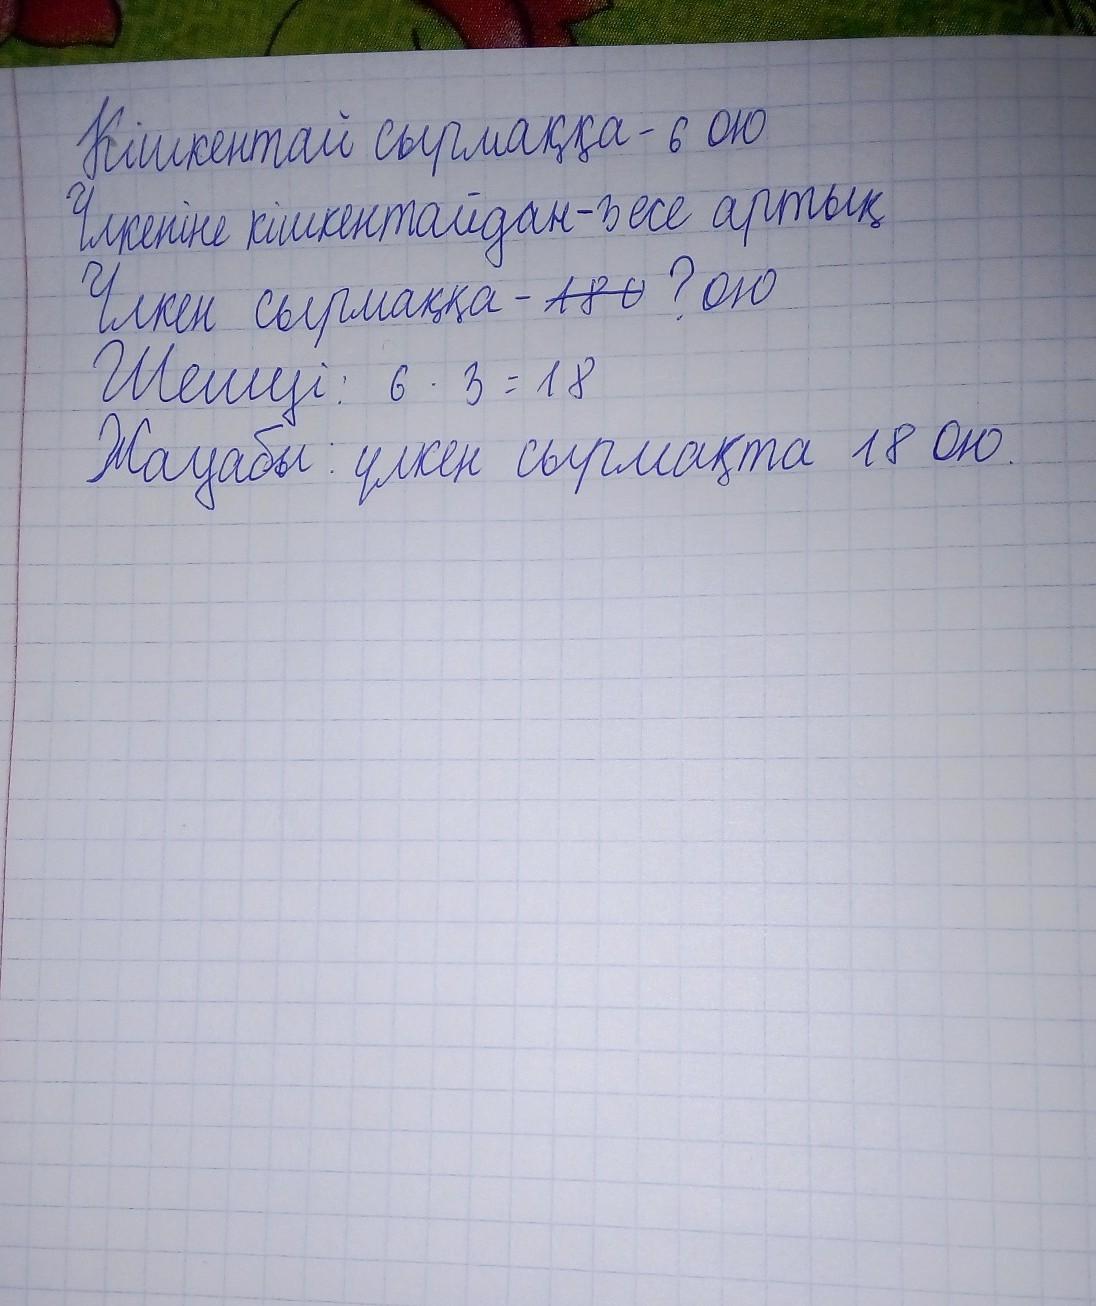 Кішкентай сырмаққа - 6 ою
Үлкеніне кішкентайдан - 3 есе артық
Үлкен сырмаққа - ? ою
Шешуі: 6 · 3 = 18
Жауабы: үлкен сырмақта 18 ою.